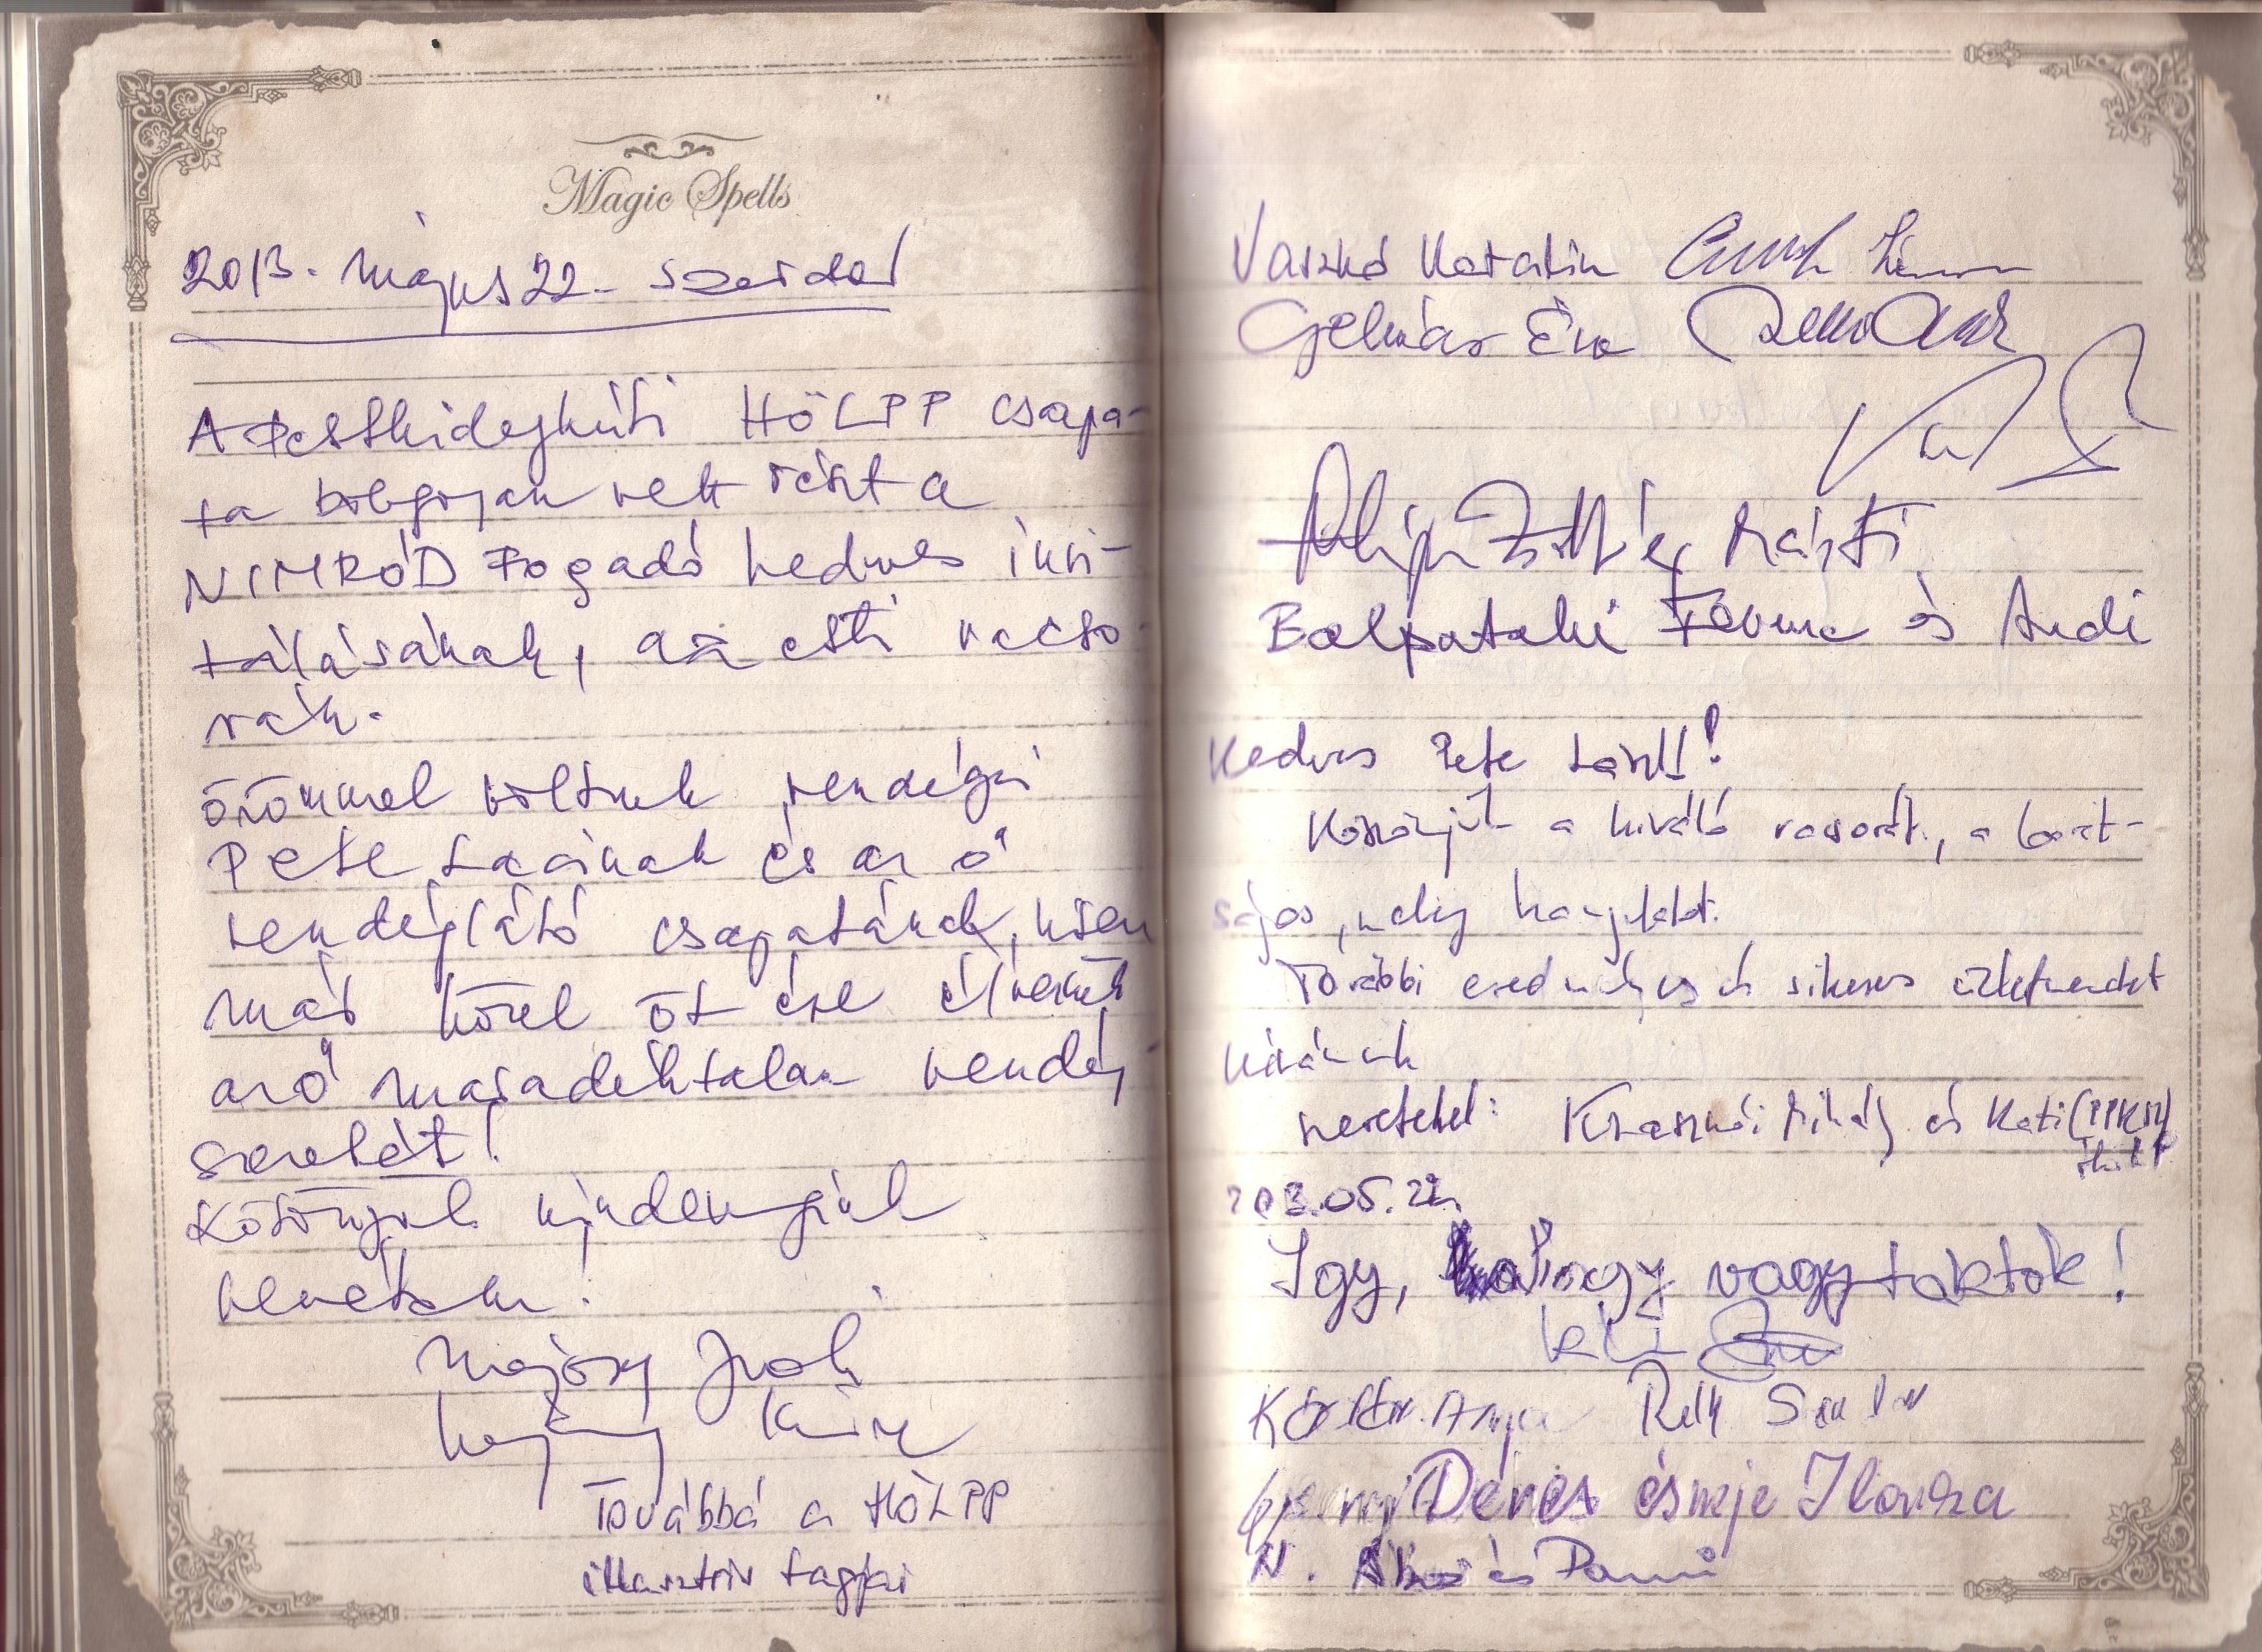 Magic Spells
2013. május 22. szerda
A Pesthidegkúti HÖLPP csapa-
ta boldogan vett részt a
NIMRÓD Fogadó kedves invi-
tálásának, az esti vacso-
rán.
Örömmel voltunk vendégei
Pete Lacinak és az ő
vendéglátó csapatának, hisen
már közel öt éve élvezzük
az ő maradéktalan vendég-
szeretét!
Köszönjük mindengyiük
nevében!
Majorsy Zsolt
Továbbá a HÖLPP
illusztris tagjai
Vaszkó Katalin
Gelnár Éva
és Márti
Balpataki Ferenc és Andi
Kedves Pete László!
Köszönjük a kiváló vacsorát, a barát-
ságos, meleg hangulatot.
További eredményes és sikeres üzletmenetet
kívánunk
szeretettel: Krasznai Mihály és Kati
2013.05.22.
Igy, hahogy vagytoktok!
Anya
Dénes és neje Ilonka
N.